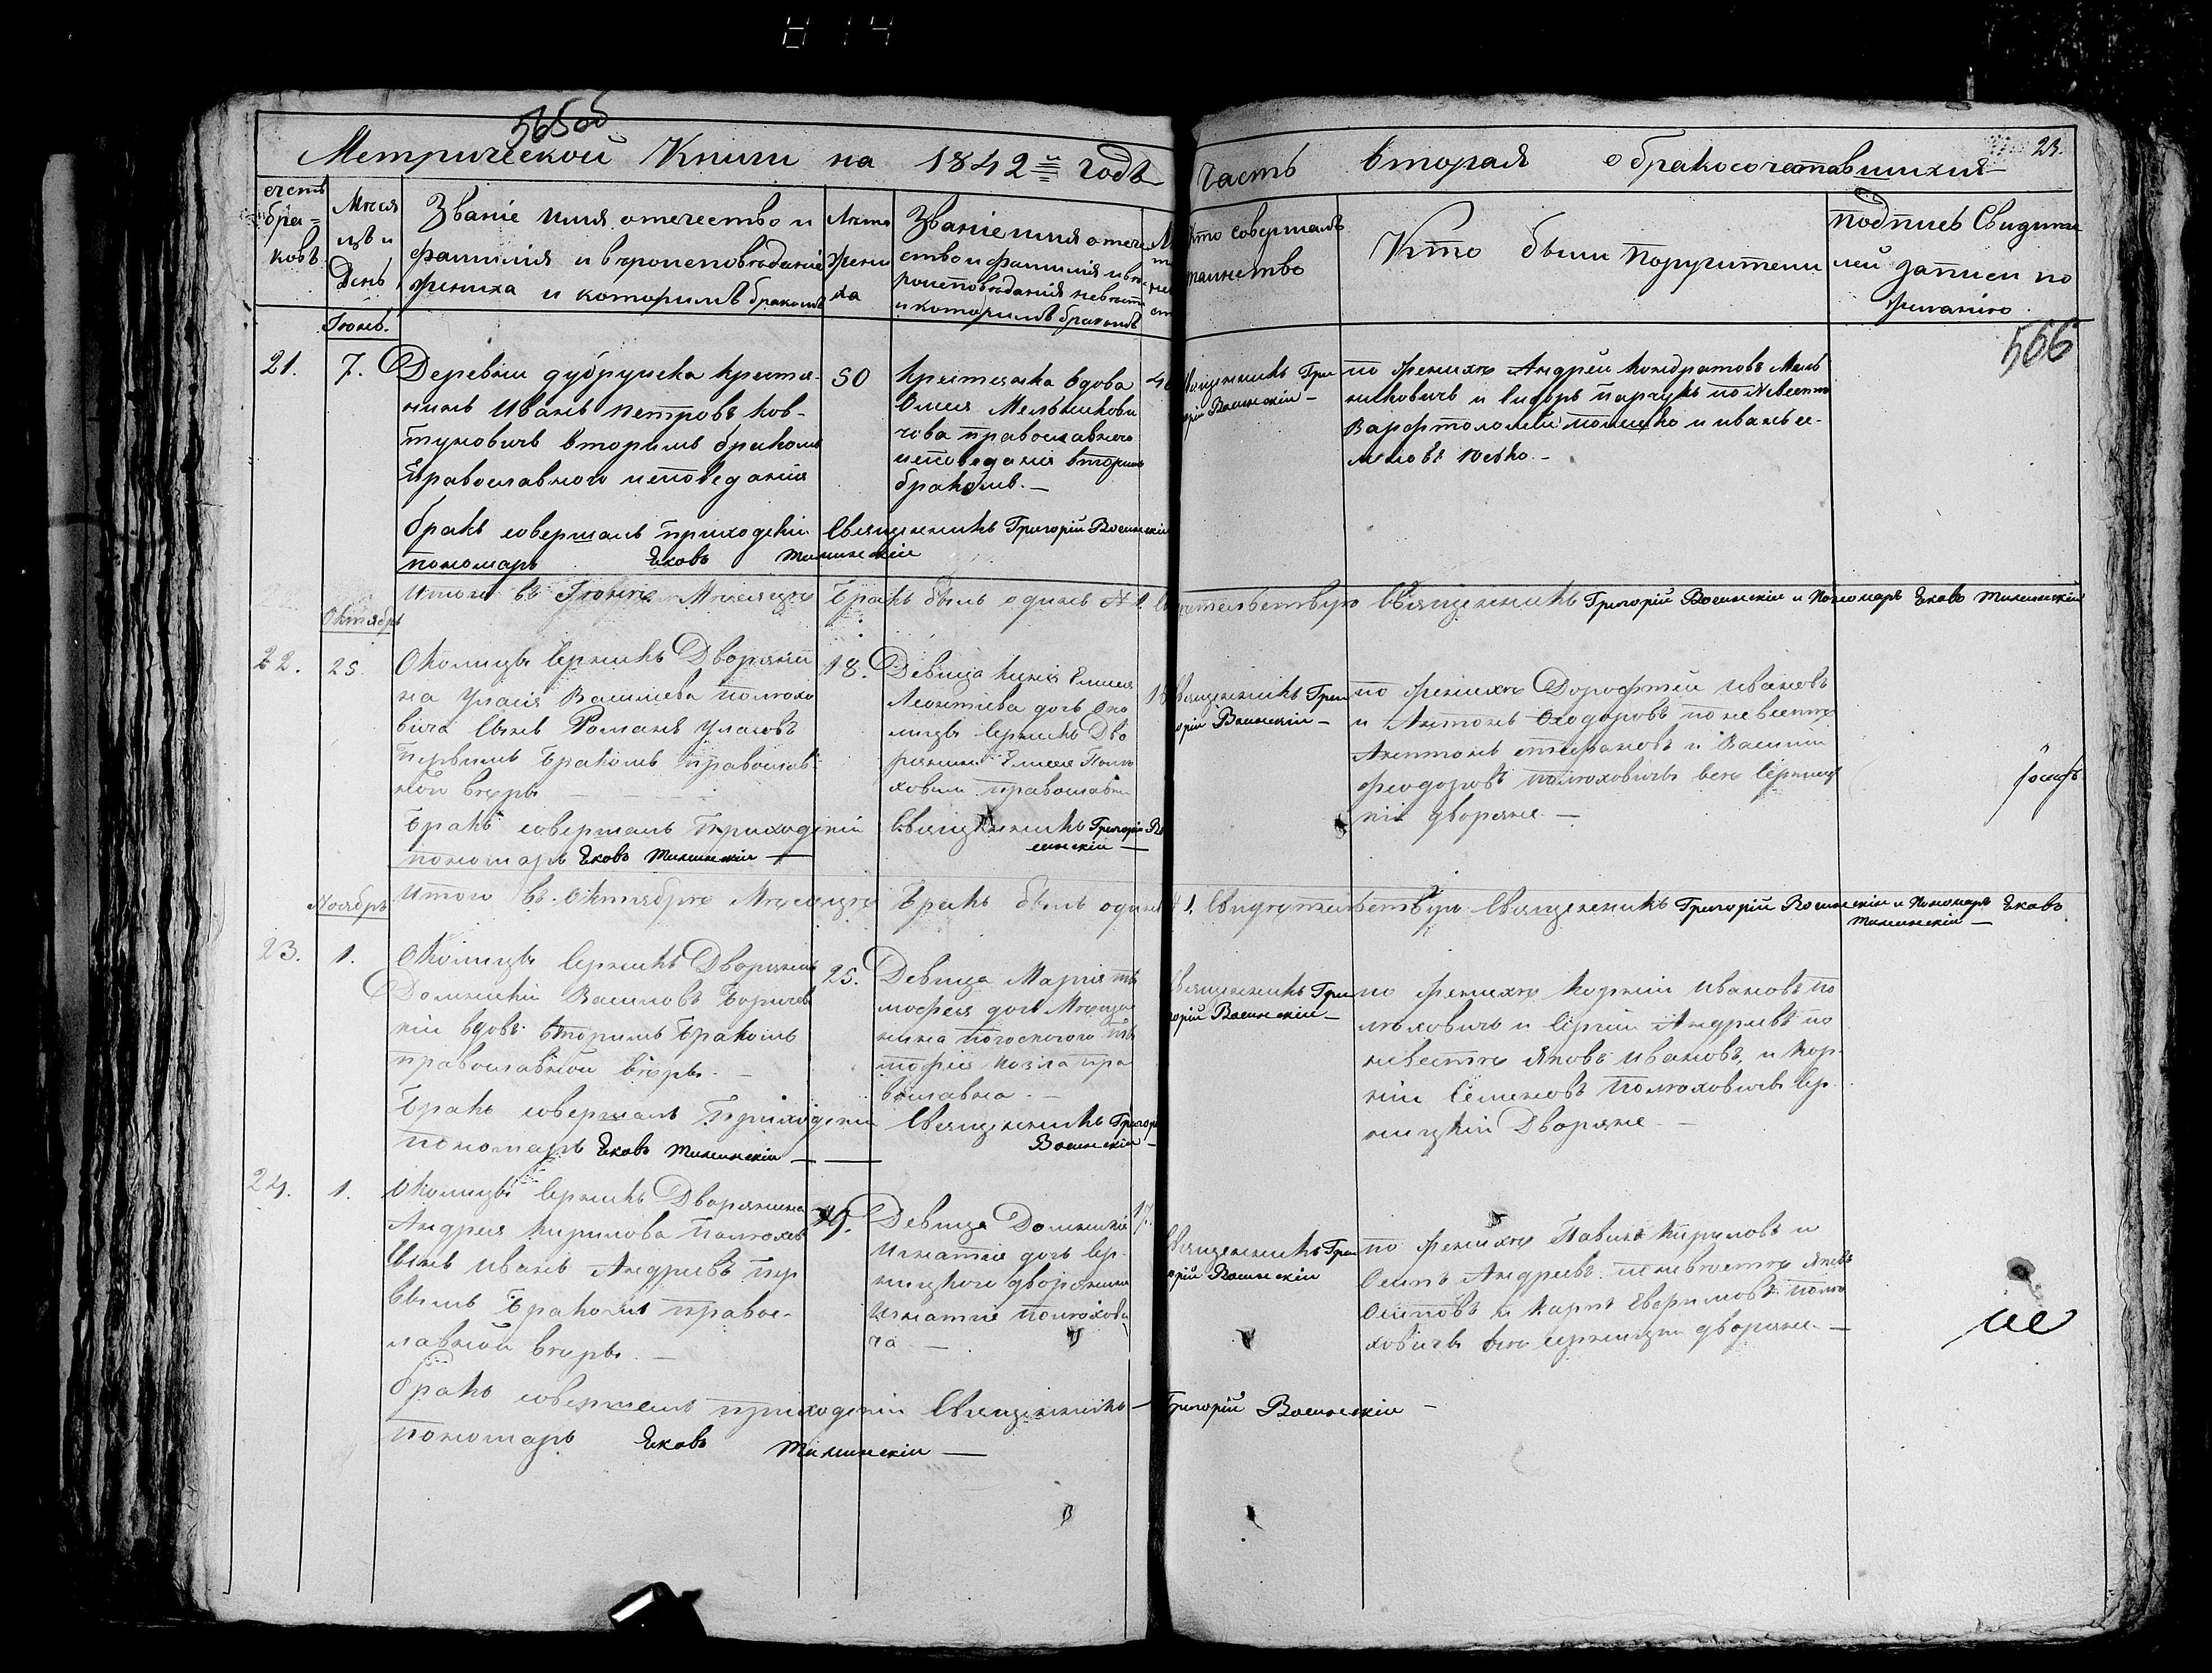 565об
Метрической Книги на 1842й годъ Часть вторая о бракосочетавшихся 23.
счетъ бра=ковъ
Месяцъ и День
Званіе имя отечество и
фамилія и вѣроисповѣданіе
жениха и которимъ бракомъ
Лета жениха
Званіе имя отече
ство и фамилія и вѣ
роисповѣданія невѣсти
и которимъ бракомъ
Кто совершалъ
таинство
Кто были Поручители
подписъ Свидите
лей записи по
желанію
566
Іюнь.
21. 7.
Деревни дубруnска крестя-
нинъ Иванъ Петровъ Ков-
туновичъ вторимъ бракомъ
Православного исповеданія
50
Крестянка вдова
Мельникови
чова православного
исповеданія вторим
бракомъ.
40
Священникъ Гри
горій Восинскій
по женихе Андрей Кондратовъ Мель
никовичъ и Сидоръ парчукъ по Невесте
Варфтоломей и иванъ се-
меновъ
бракъ совершалъ приходскій Священникъ Григорій Восинскій
пономаръ Яковъ Тиминскій
Итого въ Іюне Месяце Бракъ былъ одинъ № 1. Свидетельствую Священникъ Григорій Восинскій и Пономаръ Яковъ Тиминскій
Октябръ
22. 25.
Околицы Серникъ Дворяни
на Уласія Васильева полюхо
вича Сынъ Романъ Уласовъ
Первимъ Бракомъ православ
ной вѣры
18.
Девица
Леонтіева дочъ Око
лицы Серникъ Дво
рянина Елисея Полю
ховича православн
Священникъ Гри
горій Восинскій
по женихе Дорофтей Ивановъ
и Антонъ Феодоровъ по невесте
стефановъ и Василій
феодоровъ полюховичы все Серниц
кіи дворяне.
Бракъ совершалъ Приходскій Священникъ Григорій Во
синскій
пономаръ Яковъ Тиминскій
Ноябръ
Итого въ Октябре Месяце Бракъ былъ одинъ № 1. Свидетельствую Священникъ Григорій Восинскій и Пономаръ Яковъ
Тиминскій
23. 1.
Околицы Серникъ Дворянинъ
Василовъ Боричев
кій вдовъ вторимъ Бракомъ
православной вѣры.
25.
Девица Марія ти
мофея дочъ Меща
нина погоского ти
мофія Козла пра
вославна.
Священникъ Гри
горій Восинскій
по женихе Корній Ивановъ по
люховичъ и Сергій Андреевъ по
невесте Яковъ Ивановъ, и Кор-
ній Семеновъ Полюховичы Сер
ницкіи Дворяне.
Бракъ совершалъ Приходскій Священникъ Григорій
Восинскій
пономаръ Яковъ Тиминскій
24. 1.
Околицы Серникъ Дворянина
Андрея Кирилова Полюхов
Сынъ Иванъ Андреевъ пер
вымъ Бракомъ правос-
лавной вѣры.
19.
Девица Домникія
Игнатія дочъ Сер-
ницкого дворянина
Игнатія полюхови
ча
17.
Священникъ Гри
горій Восинскій
по женихе Павилъ Кириловъ и
Осипъ Андреевъ по невѣсте Яковъ
Осиповъ и Карпъ полю
ховичы все серницкіи дворяне.
Бракъ совершалъ приходскій Священникъ Григорій Восинскій
пономаръ Яковъ Тиминскій